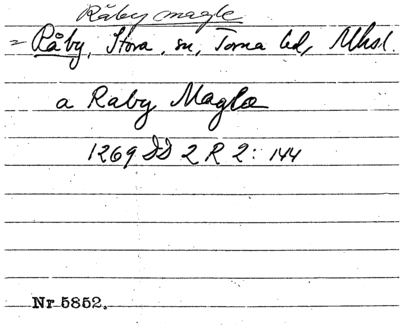 Råby magle
= Råby, Stora, sn, Torna hd, Mhsl.
a Raby Magle
1269 DD 2 R 2: 144
Nr 5852.